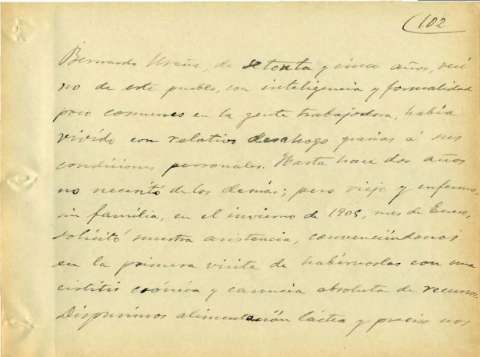 (102
Bernardo Ureña, de setenta y cinco años, veci
no de este pueblo, con inteligencia y formalidad
poco comunes en la gente trabajadora, había
vivido con relativo desahogo gracias á sus
condiciones personales. Hasta hace dos años
no necesitó de los demás; pero viejo y enfermo,
sin familia, en el invierno de 1905, mes de Enero,
solicitó nuestra asistencia, convenciéndonos
en la primera visita de habérnoslas con una
cistitis crónica y carencia absoluta de recursos.
Dispusimos alimentación láctea y preciso nos